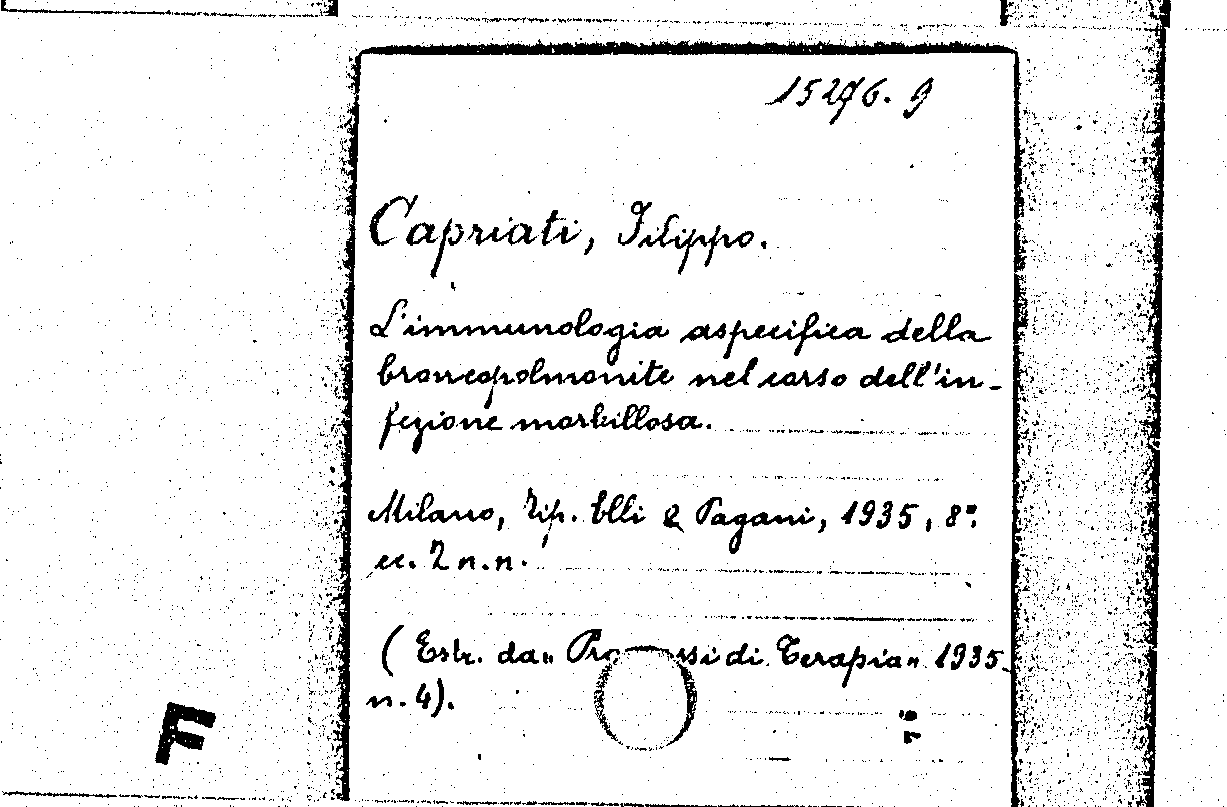 15276. 9
Capriati, Filippo.
L'immunologia aspecifica della
broncopolmonite nel corso dell'in-
fezione morbillosa.
Milano, Tip. Elli & Pagani, 1935, 8°.
cc. 2 n.n.
( Estr. da „ Pro ssi di Terapia „ 1935.
n. 4).
F